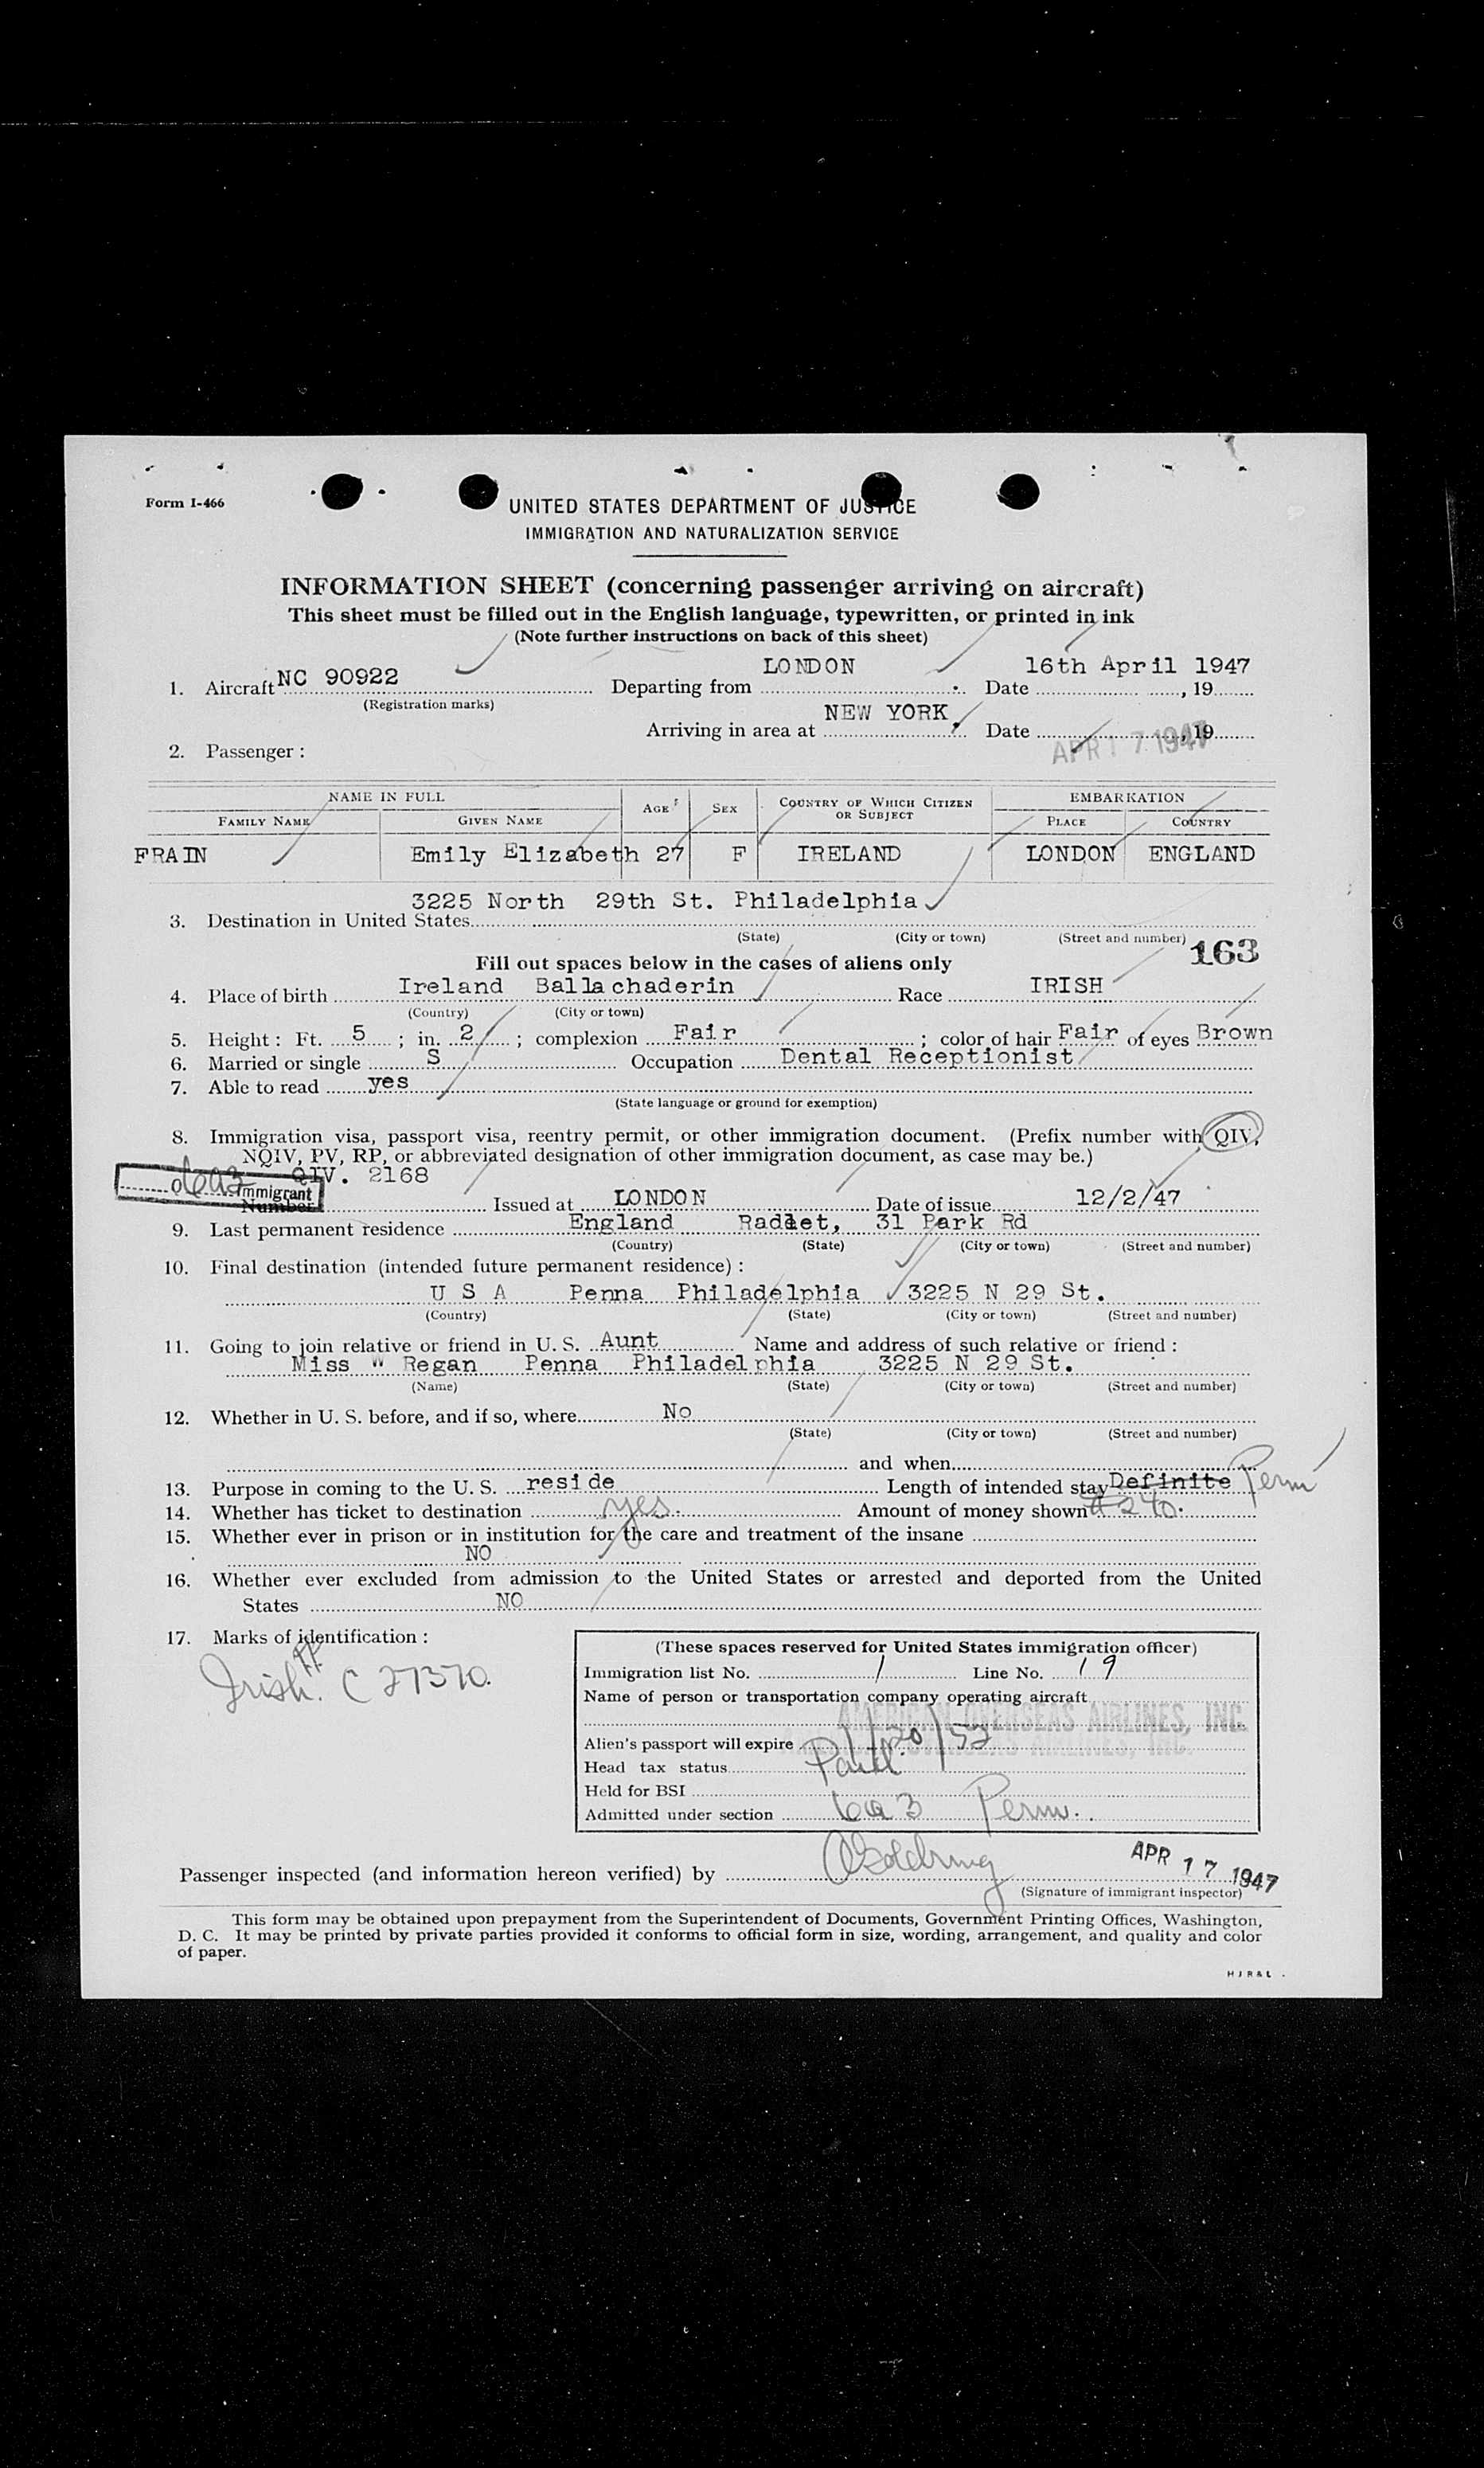 Form I-466
UNITED STATES DEPARTMENT OF JUSTICE
IMMIGRATION AND NATURALIZATION SERVICE
INFORMATION SHEET (concerning passenger arriving on aircraft)
This sheet must be filled out in the English language, typewritten, or printed in ink
(Note further instructions on back of this sheet)
1. Aircraft NC 90922 Departing from LONDON Date 16th April 1947, 19
(Registration marks)
Arriving in area at NEW YORK. Date APR 17 1947, 19
2. Passenger :
NAME IN FULL AGE SEX COUNTRY OF WHICH CITIZEN OR SUBJECT EMBARKATION
FAMILY NAME GIVEN NAME PLACE COUNTRY
FRAIN Emily Elizabeth 27 F IRELAND LONDON ENGLAND
3225 North 29th St. Philadelphia
3. Destination in United States
(State) (City or town) (Street and number) 163
Fill out spaces below in the cases of aliens only
4. Place of birth Ireland Ballachaderin Race IRISH
(Country) (City or town)
5. Height : Ft. 5 ; in. 2 ; complexion Fair ; color of hair Fair of eyes Brown
6. Married or single S Occupation Dental Receptionist
7. Able to read yes
(State language or ground for exemption)
8. Immigration visa, passport visa, reentry permit, or other immigration document. (Prefix number with QIV,
NQIV, PV, RP, or abbreviated designation of other immigration document, as case may be.)
QIV. 2168
Immigrant
Number Issued at LONDON Date of issue 12/2/47
9. Last permanent residence England Radlet, 31 Park Rd
(Country) (State) (City or town) (Street and number)
10. Final destination (intended future permanent residence) :
U S A Penna Philadelphia 3225 N 29 St.
(Country) (State) (City or town) (Street and number)
11. Going to join relative or friend in U. S. Aunt Name and address of such relative or friend :
Miss W Regan Penna Philadelphia 3225 N 29 St.
(Name) (State) (City or town) (Street and number)
12. Whether in U. S. before, and if so, where No
(State) (City or town) (Street and number)
and when
13. Purpose in coming to the U. S. reside Length of intended stay Definite Perm
14. Whether has ticket to destination yes. Amount of money shown $240.
15. Whether ever in prison or in institution for the care and treatment of the insane
NO
16. Whether ever excluded from admission to the United States or arrested and deported from the United
States NO
17. Marks of identification :
Irish. PP. C 27370.
(These spaces reserved for United States immigration officer)
Immigration list No. 1 Line No. 19
Name of person or transportation company operating aircraft
AMERICAN OVERSEAS AIRLINES, INC.
Alien's passport will expire 1/20/52
Head tax status Paid
Held for BSI
Admitted under section 6a3 Perm.
APR 17 1947
Passenger inspected (and information hereon verified) by
(Signature of immigrant inspector)
This form may be obtained upon prepayment from the Superintendent of Documents, Government Printing Offices, Washington,
D. C. It may be printed by private parties provided it conforms to official form in size, wording, arrangement, and quality and color
of paper.
H J R & L